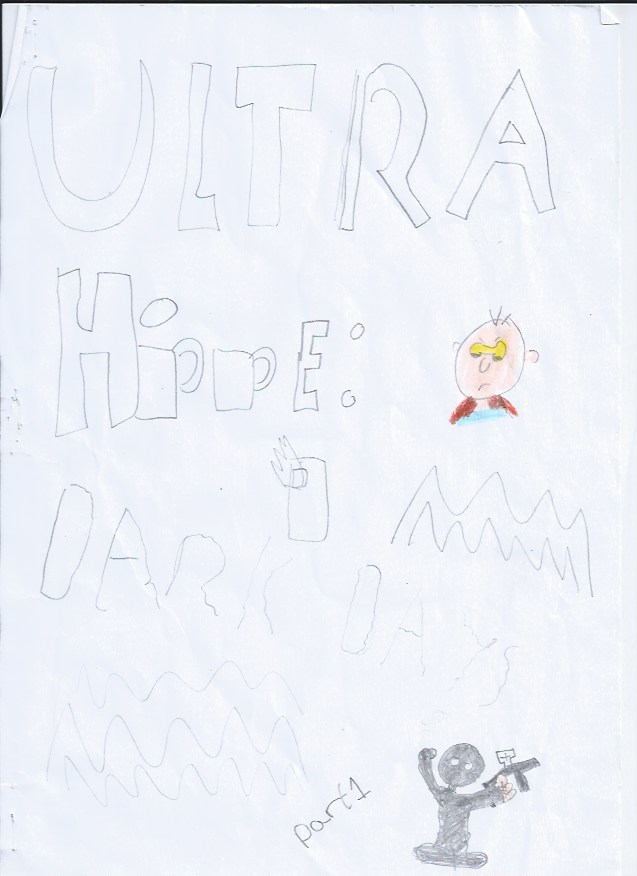 ULTRA
HippE:
DARK DAYS
part1